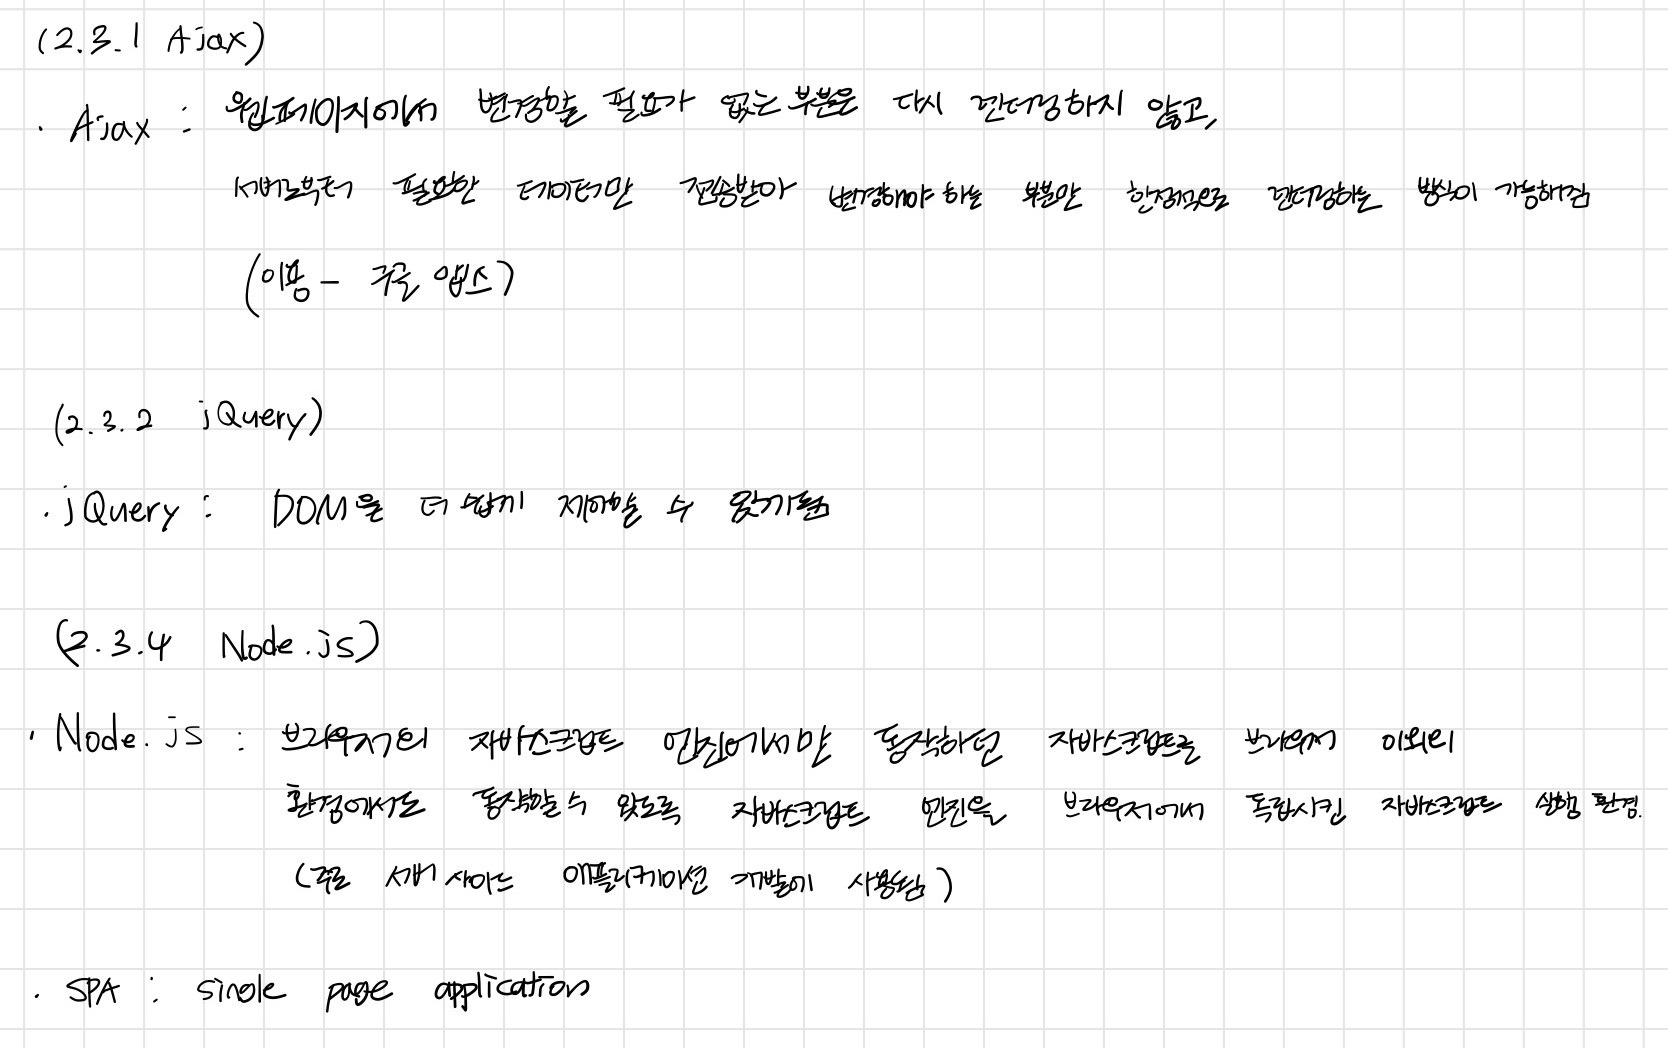 (2.3.1 Ajax)
· Ajax : 웹페이지에서 변경할 필요가 없는 부분은 다시 렌더링하지 않고,
서버로부터 필요한 데이터만 전송받아 변경해야 하는 부분만 한정적으로 렌더링하는 방식이 가능해짐
(이용 - 구글 맵스)
(2.3.2 jQuery)
· jQuery : DOM을 더 쉽게 제어할 수 있게됨
(2.3.4 Node.js)
· Node.js : 브라우저의 자바스크립트 엔진에서만 동작하던 자바스크립트를 브라우저 이외의
환경에서도 동작할 수 있도록 자바스크립트 엔진을 브라우저에서 독립시킨 자바스크립트 실행 환경.
(주로 서버 사이드 애플리케이션 개발에 사용됨)
· SPA : single page application